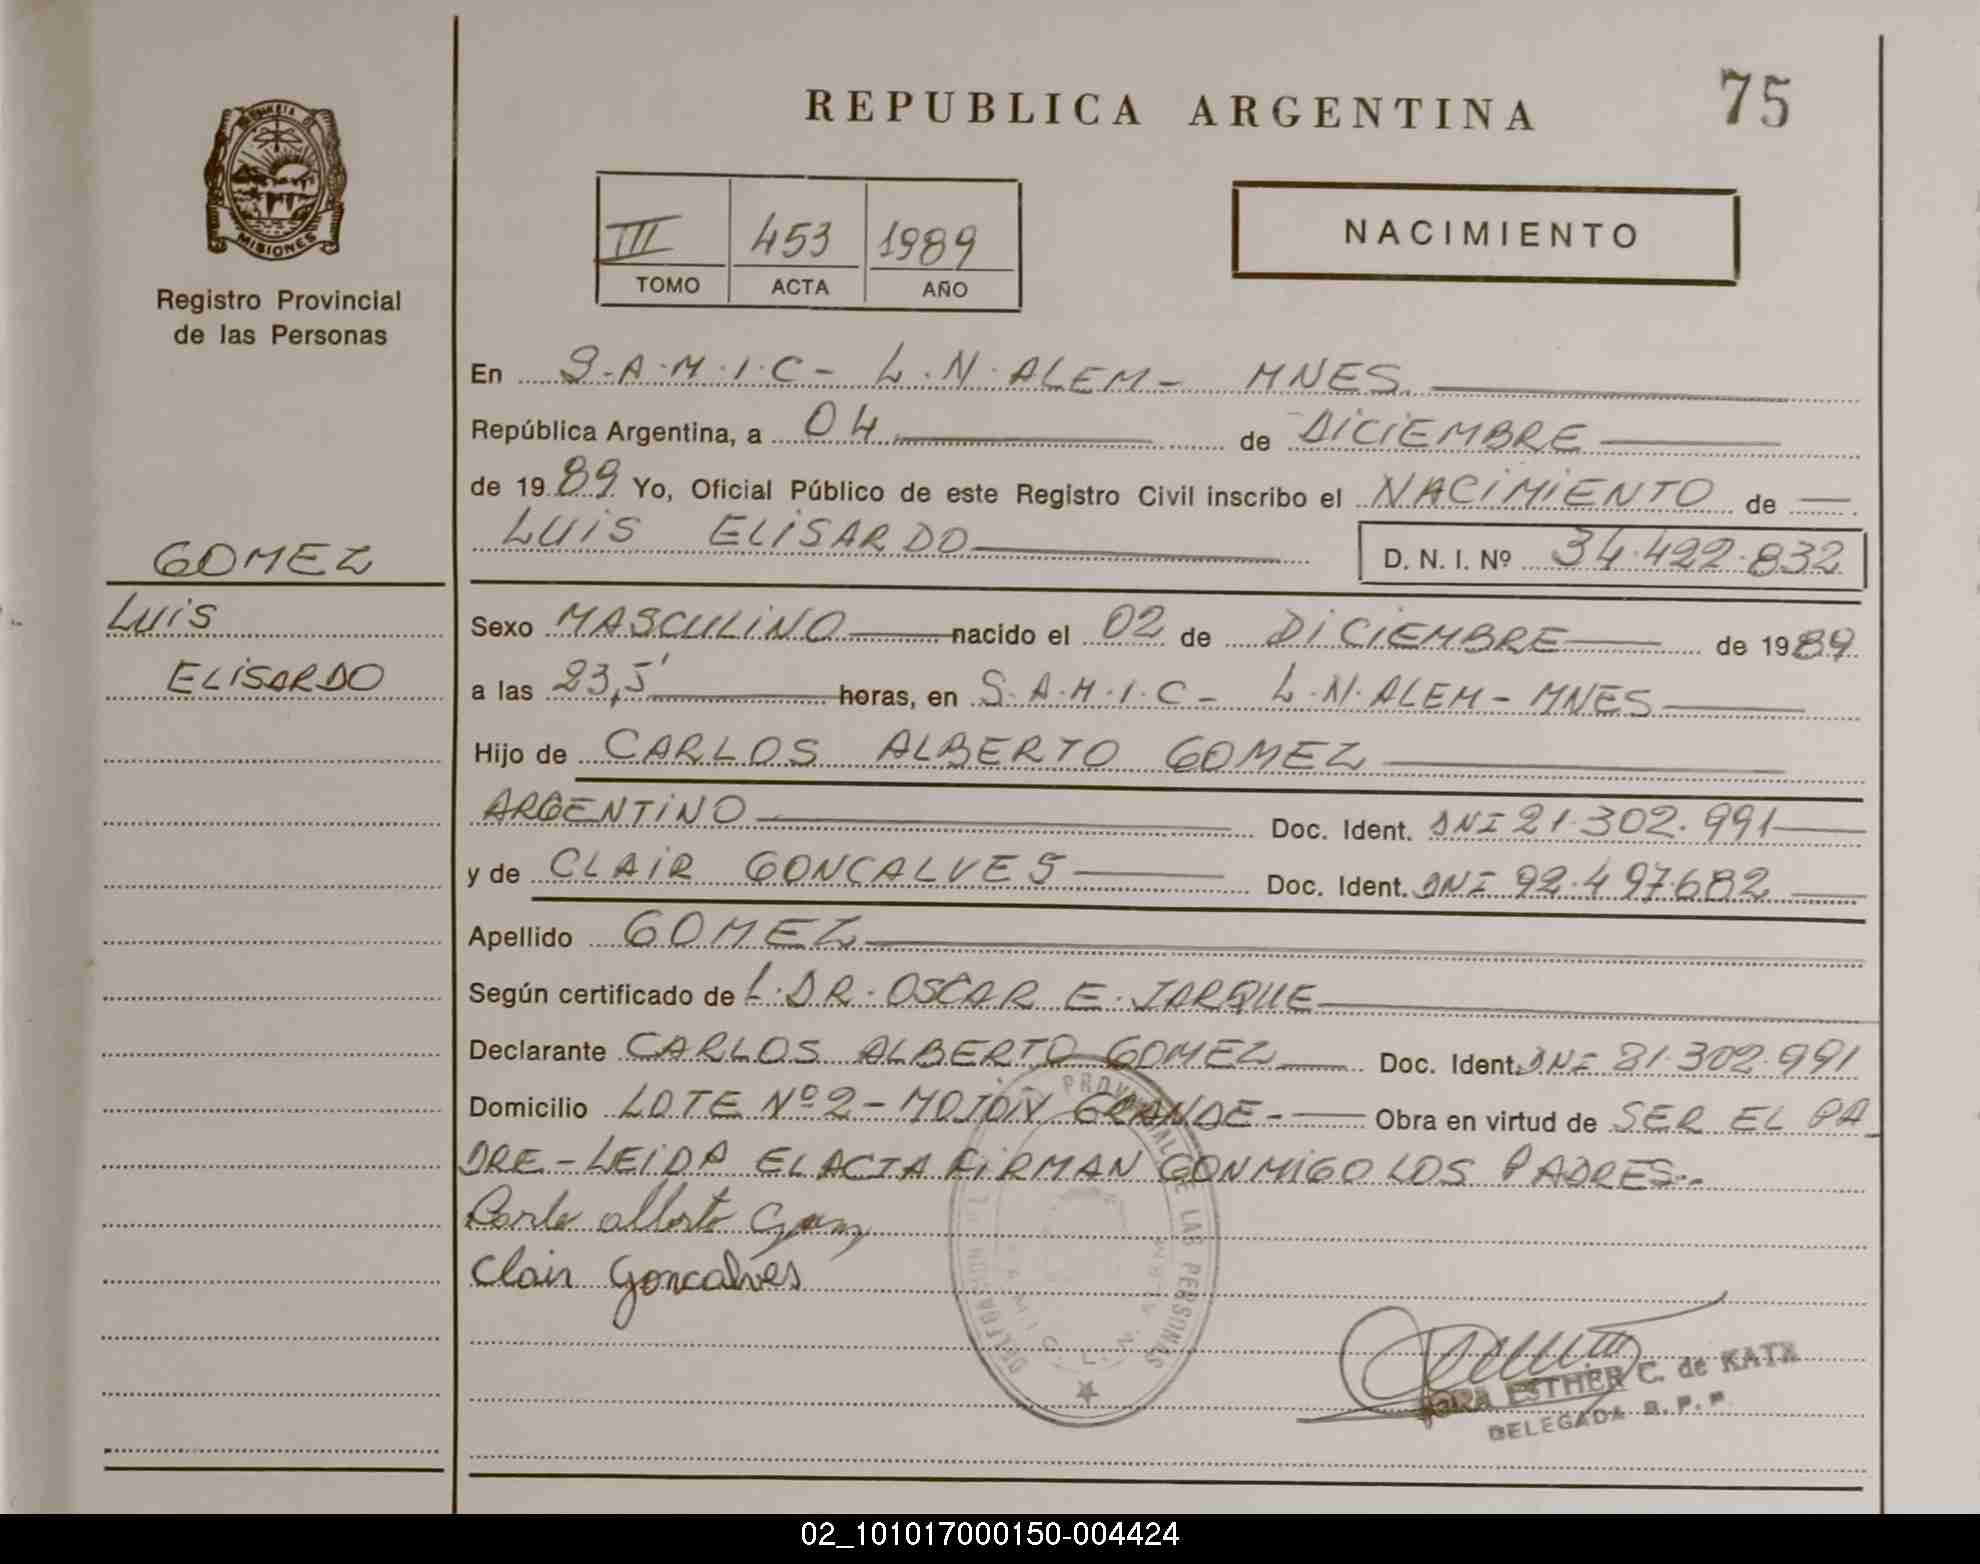 REPUBLICA ARGENTINA
75
MISIONES
Registro Provincial
de las Personas
III 453 1989
TOMO ACTA AÑO
NACIMIENTO
En S.A.M.I.C - L.N.ALEM - MNES.
República Argentina, a 04 de DICIEMBRE
de 1989 Yo, Oficial Público de este Registro Civil inscribo el NACIMIENTO de
LUIS ELISARDO D. N. I. Nº 34.422.832
GOMEZ
LUIS
ELISARDO
Sexo MASCULINO nacido el 02 de DICIEMBRE de 1989
a las 23,5' horas, en S.A.M.I.C - L.N.ALEM - MNES
Hijo de CARLOS ALBERTO GOMEZ
ARGENTINO Doc. Ident. DNI 21.302.991
y de CLAIR GONCALVES Doc. Ident. DNI 92.497.682
Apellido GOMEZ
Según certificado de L.DR.OSCAR E. JARQUE
Declarante CARLOS ALBERTO GOMEZ Doc. Ident. DNI 21.302.991
Domicilio LOTE Nº 2 - MOJON GRANDE - Obra en virtud de SER EL PA
DRE - LEIDA EL ACTA FIRMAN CONMIGO LOS PADRES.-
Carlo Alberto Gomez
Clair Goncalves
ESTHER C. de KATZ
DELEGADA R. P. P.
02_101017000150-004424